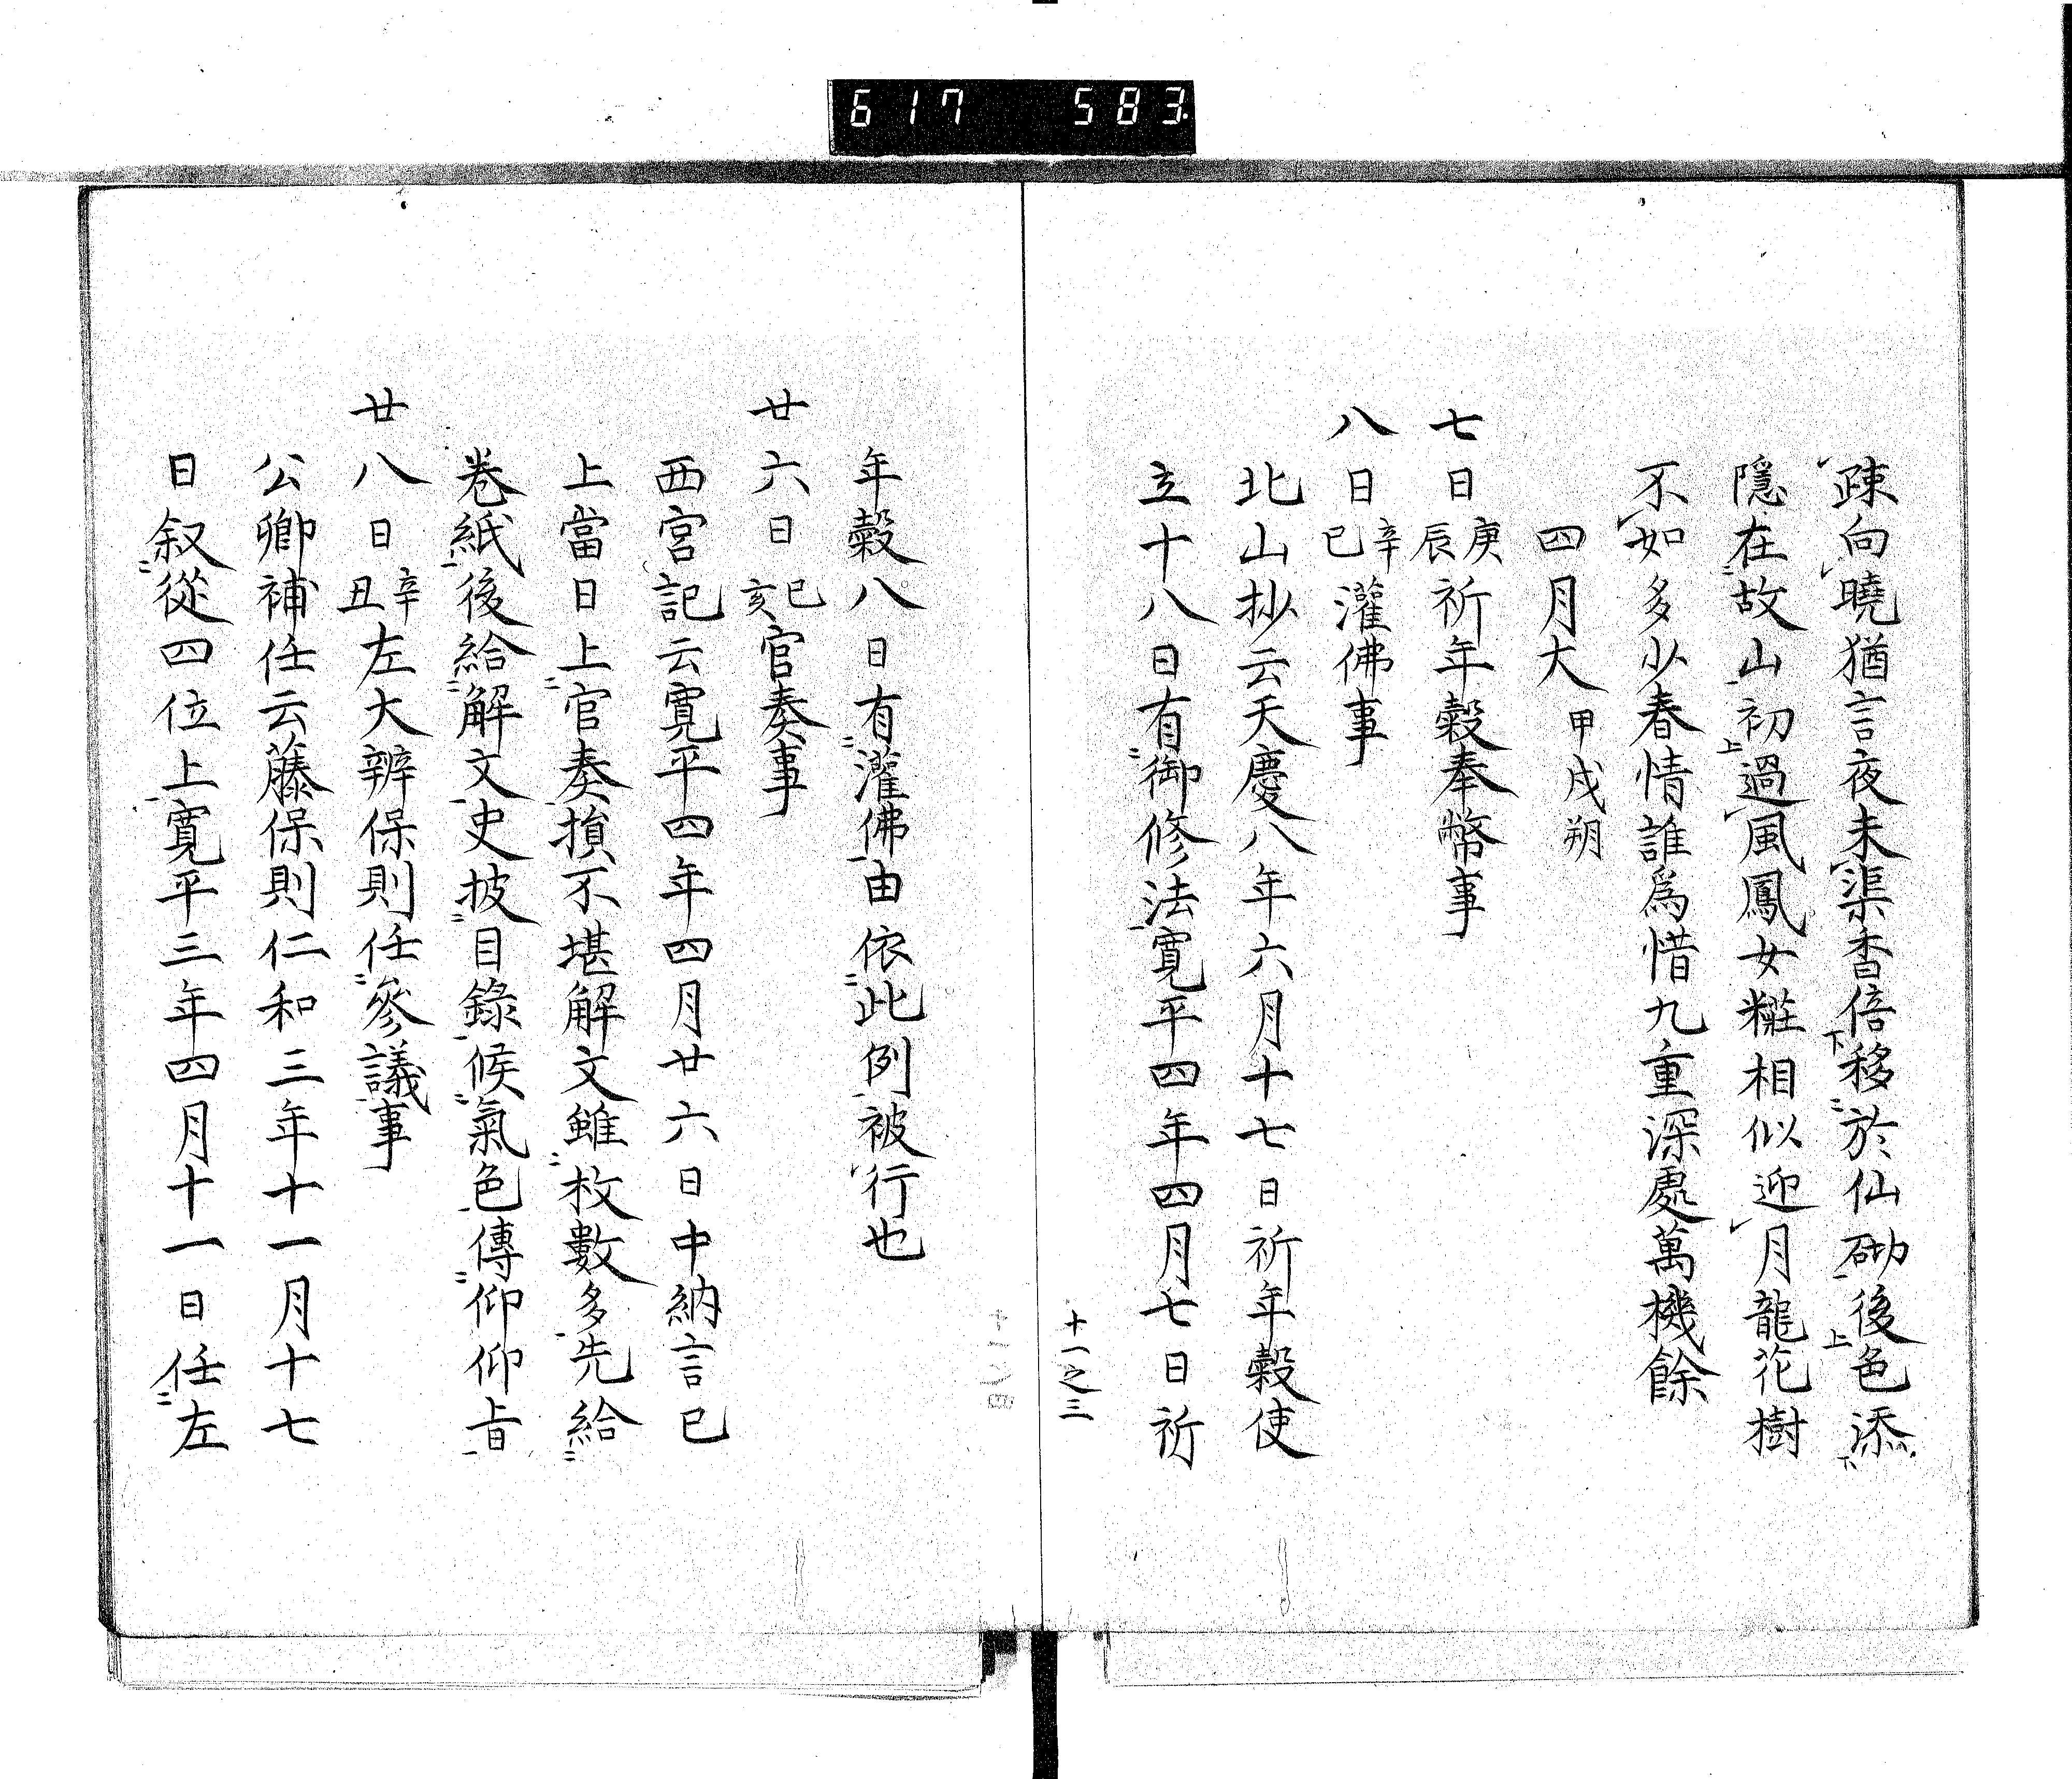 617 583.
疎向曉猶言夜未渠香倍移於仙砌後色添
隱在故山初過風鳳女糚相似迎月龍花樹
不如多少春情誰爲惜九重深處萬機餘
四月大 甲戌朔
七日庚辰祈年穀奉幣事
八日辛巳灌佛事
北山抄云天慶八年六月十七日祈年穀使
立十八日有御修法寛平四年四月七日祈
十一之三
年穀八日有灌佛由依此例被行也
廿六日己亥官奏事
西宮記云寛平四年四月廿六日中納言已
上當日上官奏損不堪解文雖枚數多先給
卷紙後給解文史披目錄候氣色傳仰仰旨
廿八日辛丑左大辨保則任參議事
公卿補任云藤保則仁和三年十一月十七
日叙從四位上寛平三年四月十一日任左